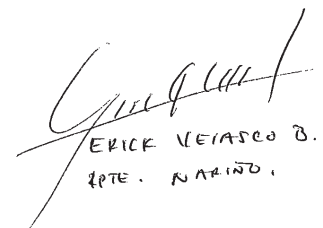 ERICK VELASCO B.
RPTE. NARIÑO.